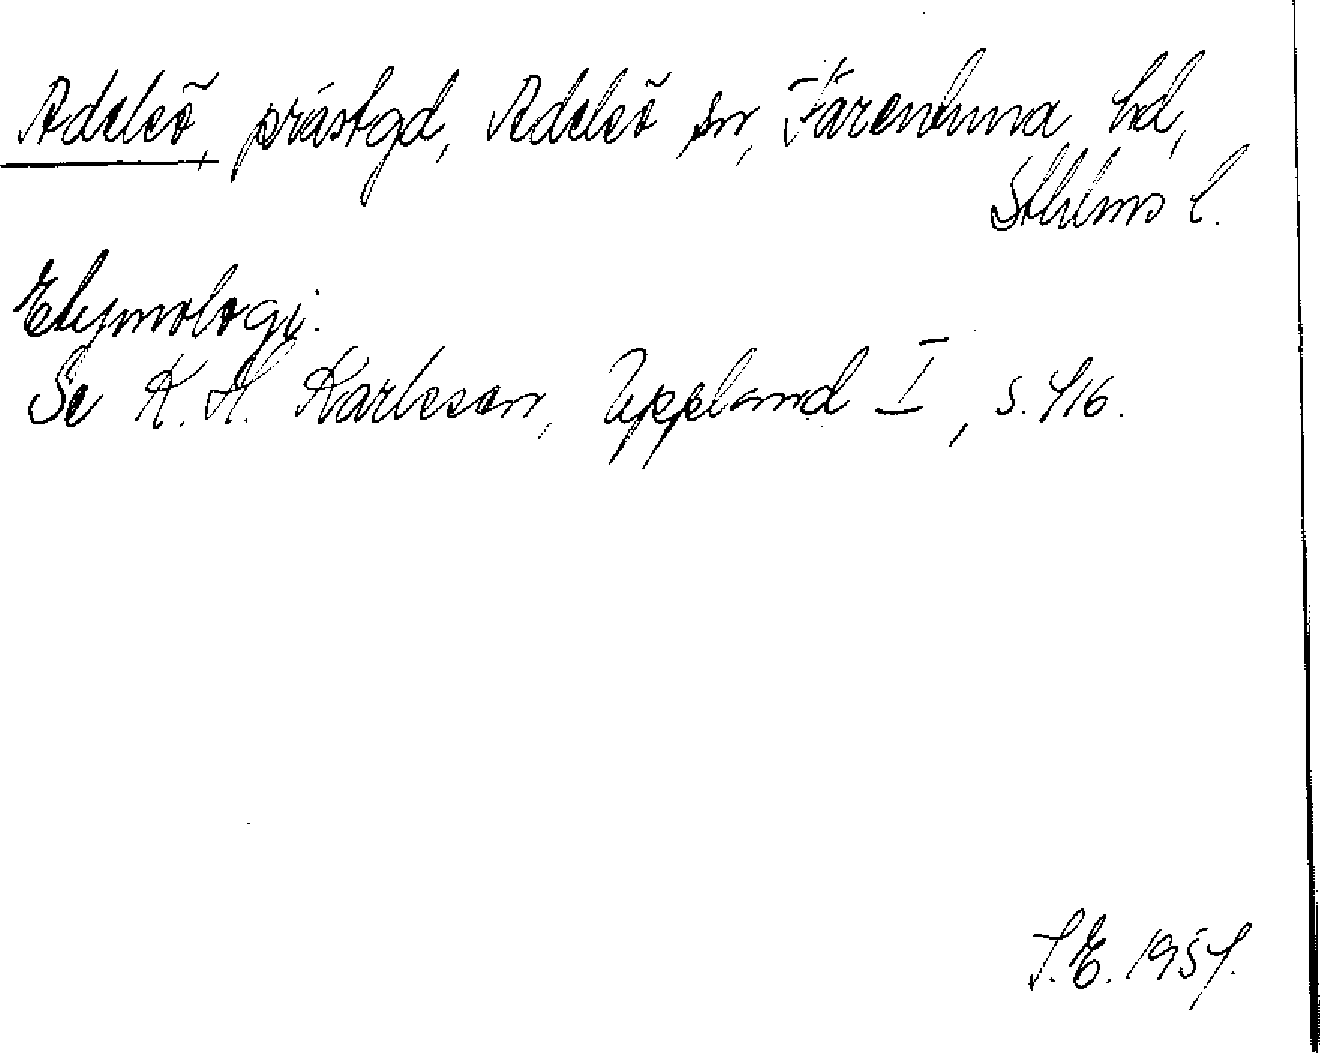 Adelsö, prästgd, Adelsö sn, Färentuna hd,
Sthlms l.
Etymologi.
Se K. H. Karlsson, Uppland I, s. 416.
S.E. 1954.